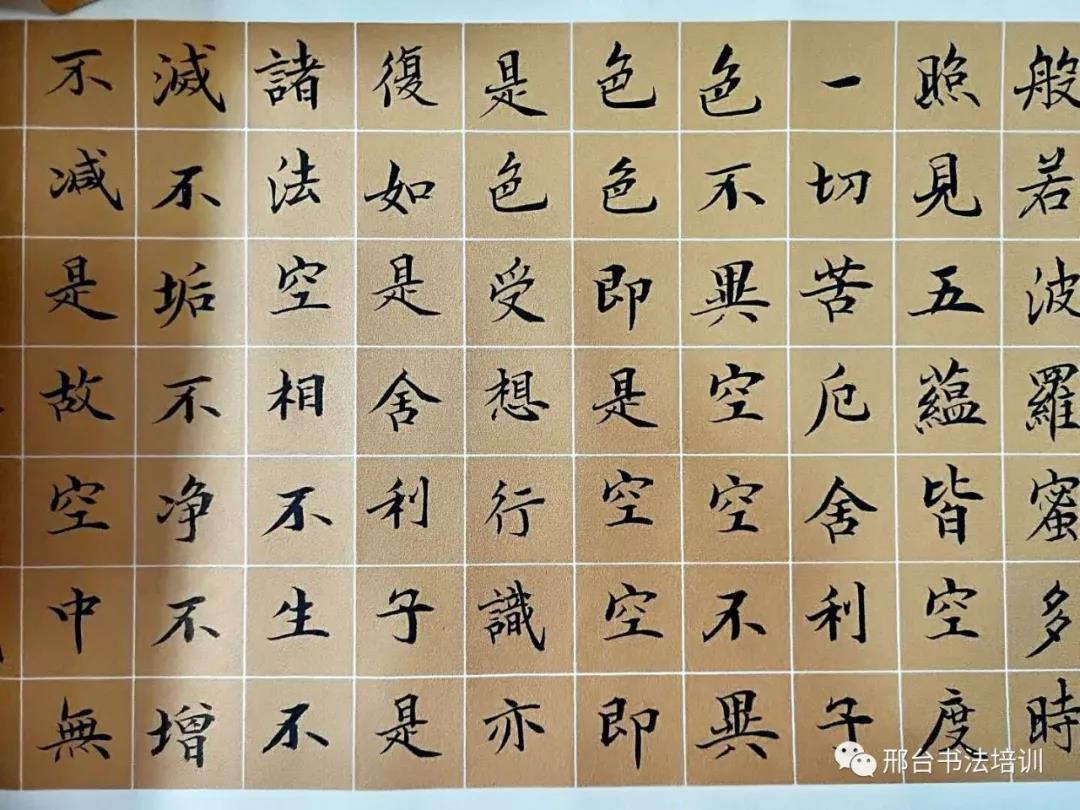 般若波羅蜜多時
照見五蘊皆空度
一切苦厄舍利子
色不異空空不異
色色即是空空即
是色受想行識亦
復如是舍利子是
諸法空相不生不
滅不垢不净不增
不減是故空中無
邢台书法培训